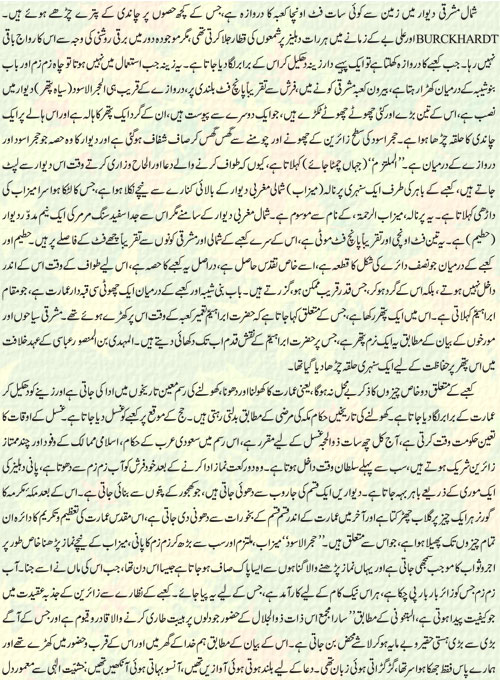 شمال مشرقی دیوار میں زمین سے کوئی سات فٹ اونچا کعبہ کا دروازہ ہے، جس کے کچھ حصوں پر چاندی کے پترے چڑھے ہوئے ہیں۔
BURCKHARDT اور علی بے کے زمانے میں ہر رات دہلیز پر شمعوں کی قطار جلا کرتی تھی، مگر موجودہ دور میں برقی روشنی کی وجہ سے اس کا رواج باقی
نہیں رہا۔ جب کعبے کا دروازہ کھلتا ہے تو ایک پہیے دار زینہ دھکیل کر اس کے برابر لگا دیا جاتا ہے۔ یہ زینہ جب استعمال میں نہیں ہوتا تو چاہ زمزم اور باب
بنو شیبہ کے درمیان کھڑا رہتا ہے، بیرون کعبہ مشرقی کونے میں، فرش سے تقریباً پانچ فٹ بلندی پر، دروازے کے قریب ہی الحجر الاسود (سیاہ پتھر) دیوار میں
نصب ہے، اس کے تین بڑے اور کئی چھوٹے چھوٹے ٹکڑے ہیں، جو ایک دوسرے سے پیوست ہیں، ان کے گرد ایک پتھر کا ہالہ ہے اور اس ہالے پر ایک
چاندی کا حلقہ چڑھا ہوا ہے۔ حجر اسود کی سطح زائرین کے چھونے اور چومنے سے گھس گھس کر صاف شفاف ہو گئی ہے اور دیوار کا وہ حصہ جو حجر اسود اور
دروازے کے درمیان ہے۔ ’’الملتزم‘‘ (جہاں چمٹا جائے) کہلاتا ہے، کیوں کہ طواف کرنے والے دعا اور الحاح و زاری کرتے وقت اس دیوار سے لپٹ
جاتے ہیں، کعبے کے باہر کی طرف ایک سنہری پرنالہ (میزاب) شمالی مغربی دیوار کے بالائی کنارے سے نیچے نکلا ہوا ہے، جس کا لٹکا ہوا سرا میزاب کی
داڑھی کہلاتا ہے۔ یہ پرنالہ، میزاب الرحمۃ، کے نام سے موسوم ہے۔ شمالی مغربی دیوار کے سامنے مگر اس سے جدا سفید سنگ مرمر کی ایک نیم مدوّر دیوار
(حطیم) ہے۔ یہ تین فٹ اونچی اور تقریباً پانچ فٹ موٹی ہے، اس کے سرے کعبے کے شمالی اور مشرقی کونوں سے تقریباً چھے فٹ کے فاصلے پر ہیں۔ حطیم اور
کعبے کے درمیان جو نصف دائرے کی شکل کا قطعہ ہے، اسے خاص تقدّس حاصل ہے، دراصل یہ کعبے کا حصہ ہے، اس لیے طواف کے وقت اس کے اندر
داخل نہیں ہوتے، بلکہ اس کے گرد ہو کر، جس قدر قریب ممکن ہو، گزرتے ہیں۔ باب بنی شیبہ اور کعبے کے درمیان ایک چھوٹی سی قبہ دار عمارت ہے، جو مقام
ابراہیمؑ کہلاتی ہے۔ اس میں ایک پتھر رکھا ہے، جس کے متعلق کہا جاتا ہے کہ حضرت ابراہیمؑ تعمیر کعبہ کے وقت اس پر کھڑے ہوئے تھے۔ مشرقی سیاحوں اور
مورخوں کے بیان کے مطابق یہ ایک نرم پتھر ہے، جس پر حضرت ابراہیمؑ کے نقش قدم اب تک دکھائی دیتے ہیں۔ المہدی بن المنصور عباسی کے عہد خلافت
میں اس پتھر پر حفاظت کے لیے ایک سنہری حلقہ چڑھا دیا گیا تھا۔
کعبے کے متعلق دو خاص چیزوں کا ذکر بے محل نہ ہو گا، یعنی عمارت کا کھولنا اور دھونا، کھولنے کی رسم معین تاریخوں میں ادا کی جاتی ہے اور زینے کو دھکیل کر
عمارت کے برابر لگا دیا جاتا ہے۔ کھولنے کی تاریخیں حکام مکہ کی مرضی کے مطابق بدلتی رہتی ہیں۔ حج کے موقع پر کعبے کو غسل دیا جاتا ہے۔ غسل کے اوقات کا
تعین حکومت وقت کرتی ہے، آج کل چھ سات ذوالحجہ غسل کے لیے مقرر ہے، اس رسم میں سعودی عرب کے حکام، اسلامی ممالک کے وفود اور چند ممتاز
زائرین شریک ہوتے ہیں، سب سے پہلے سلطان وقت داخل ہوتا ہے۔ وہ دو رکعت نماز ادا کرنے کے بعد خود فرش کو آب زم زم سے دھوتا ہے، پانی دہلیز کی
ایک موری کے ذریعے باہر بہہ جاتا ہے۔ دیواریں ایک قسم کی جاروب سے دھوئی جاتی ہیں، جو کھجور کے پتوں سے بنائی جاتی ہے۔ اس کے بعد مکہ مکرمہ کا
گورنر ہر ایک چیز پر گلاب چھڑکتا ہے اور آخر میں عمارت کے اندر قسم قسم کے بخورات سے دھونی دی جاتی ہے، اس مقدس عمارت کی تعظیم و تکریم کا دائرہ ان
تمام چیزوں تک پھیلا ہوا ہے، جو اس سے متعلق ہیں۔ ’’حجر الاسود‘‘ میزاب، ملتزم اور سب سے بڑھ کر زم زم کا پانی، میزاب کے نیچے نماز پڑھنا خاص طور پر
اجر و ثواب کا موجب سمجھی جاتی ہے اور یہاں نماز پڑھنے والا گناہوں سے ایسا پاک صاف ہو جاتا ہے جیسا اس دن تھا، جب اس کی ماں نے اسے جنا۔ آب
زم زم جس کو زائر بار بار پی چکا ہے، ہر اس نیک کام کے لیے کار آمد ہے، جس کے لیے یہ پیا جائے۔ کعبے کے نظارے سے زائرین کے جذبہ عقیدت میں
جو کیفیت پیدا ہوتی ہے، البتنونی کے مطابق ’’سارا مجمع اس ذات ذوالجلال کے حضور جو دلوں پر ہیبت طاری کرنے والا قادر و قیوم ہے اور جس کے آگے
بڑی سے بڑی ہستی حقیر و بے مایہ ہو کر لاشے محض بن جاتی ہے۔ اس کے بیان کے مطابق ہم خدا کے گھر میں اور اس کے قرب و حضور میں کھڑے تھے اور
ہمارے پاس فقط جھکا ہوا سر تھا، گڑگڑاتی ہوئی زبان تھی۔ دعا کے لیے بلند ہوتی ہوئی آوازیں تھیں، آنسو بہاتی ہوئی آنکھیں تھیں، خشیّت الٰہی سے معمور دل